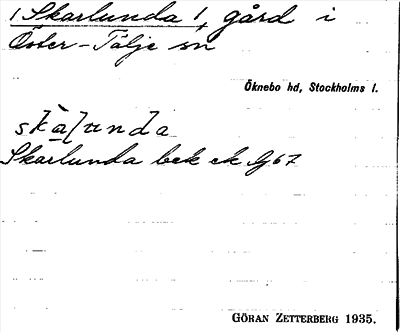 / Skarlunda /, gård i
Öster-Tälje sn
Öknebo hd, Stockholms l.
skàlunda
Skarlunda bek ek G67
GÖRAN ZETTERBERG 1935.